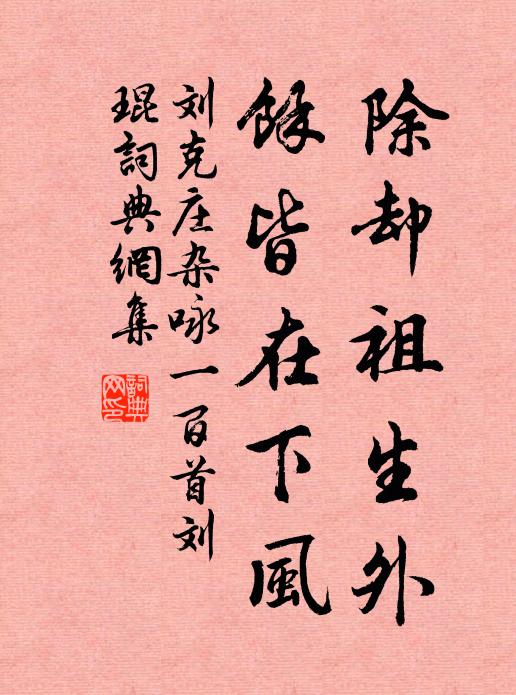 除却祖生外
餘皆在下風
刘克庄杂咏一百首刘
琨詞典網集
詞典
网印